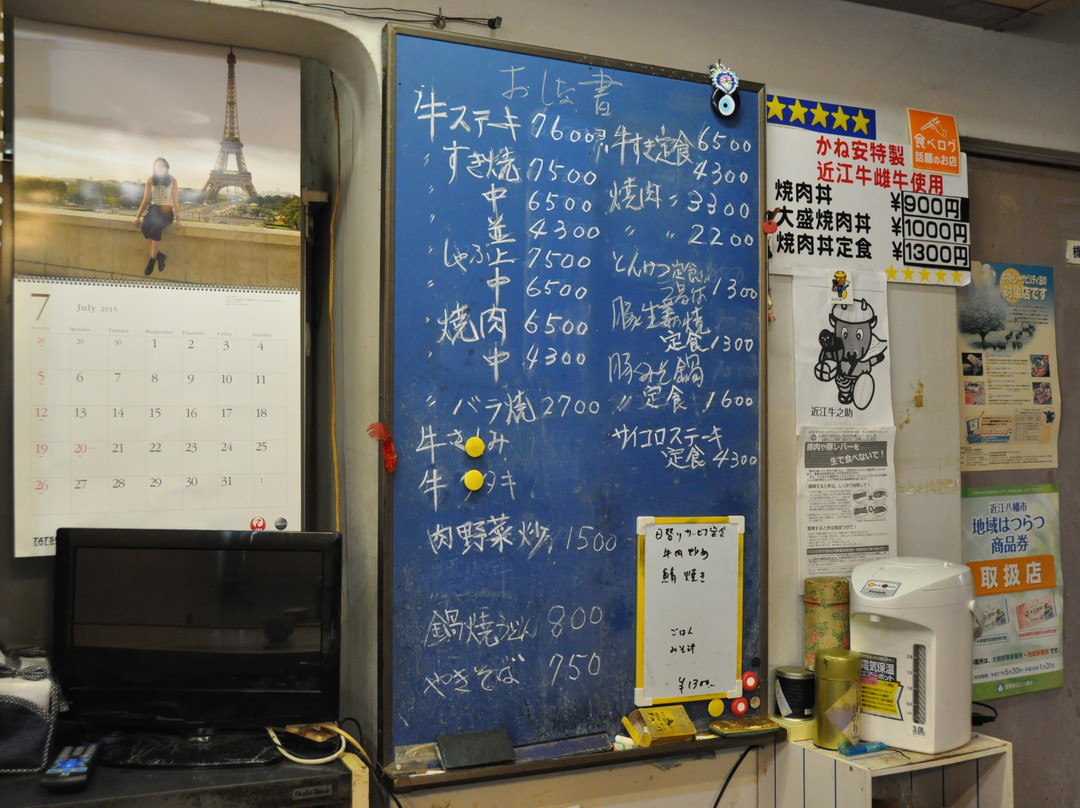 7
July 2015
Monday Tuesday Wednesday Thursday Friday Saturday
28 29 30 1 2 3 4
5 6 7 8 9 10 11
12 13 14 15 16 17 18
19 20 21 22 23 24 25
26 27 28 29 30 31 1
おしな書
牛ステーキ 7600
〃 すき焼 7500
〃 中 6500
〃 並 4300
〃 しゃぶ上 7500
〃 中 6500
〃 焼肉 6500
〃 中 4300
〃 バラ焼 2700
牛さ み
牛 タキ
肉野菜炒 1500
鍋焼うどん 800
やきそば 750
牛すき定食 6500
4300
焼肉 〃 3300
〃 〃 2200
とんかつ定食
1300
豚生姜焼
定食 1300
豚みそ鍋
〃 定食 1600
サイコロステーキ
定食 4300
日替り サービス定食
牛肉炒め
鯖焼き
ごはん
みそ汁
¥1300-
食べログ
話題のお店
かね安特製
近江牛雌牛使用
焼肉丼 ¥900円
大盛焼肉丼 ¥1000円
焼肉丼定食 ¥1300円
近江牛之助
豚肉や豚レバーを
生で食べないで!
対象店です
近江八幡市
地域はつらつ
商品券
取扱店
電気保温
エアーポット
3.0L